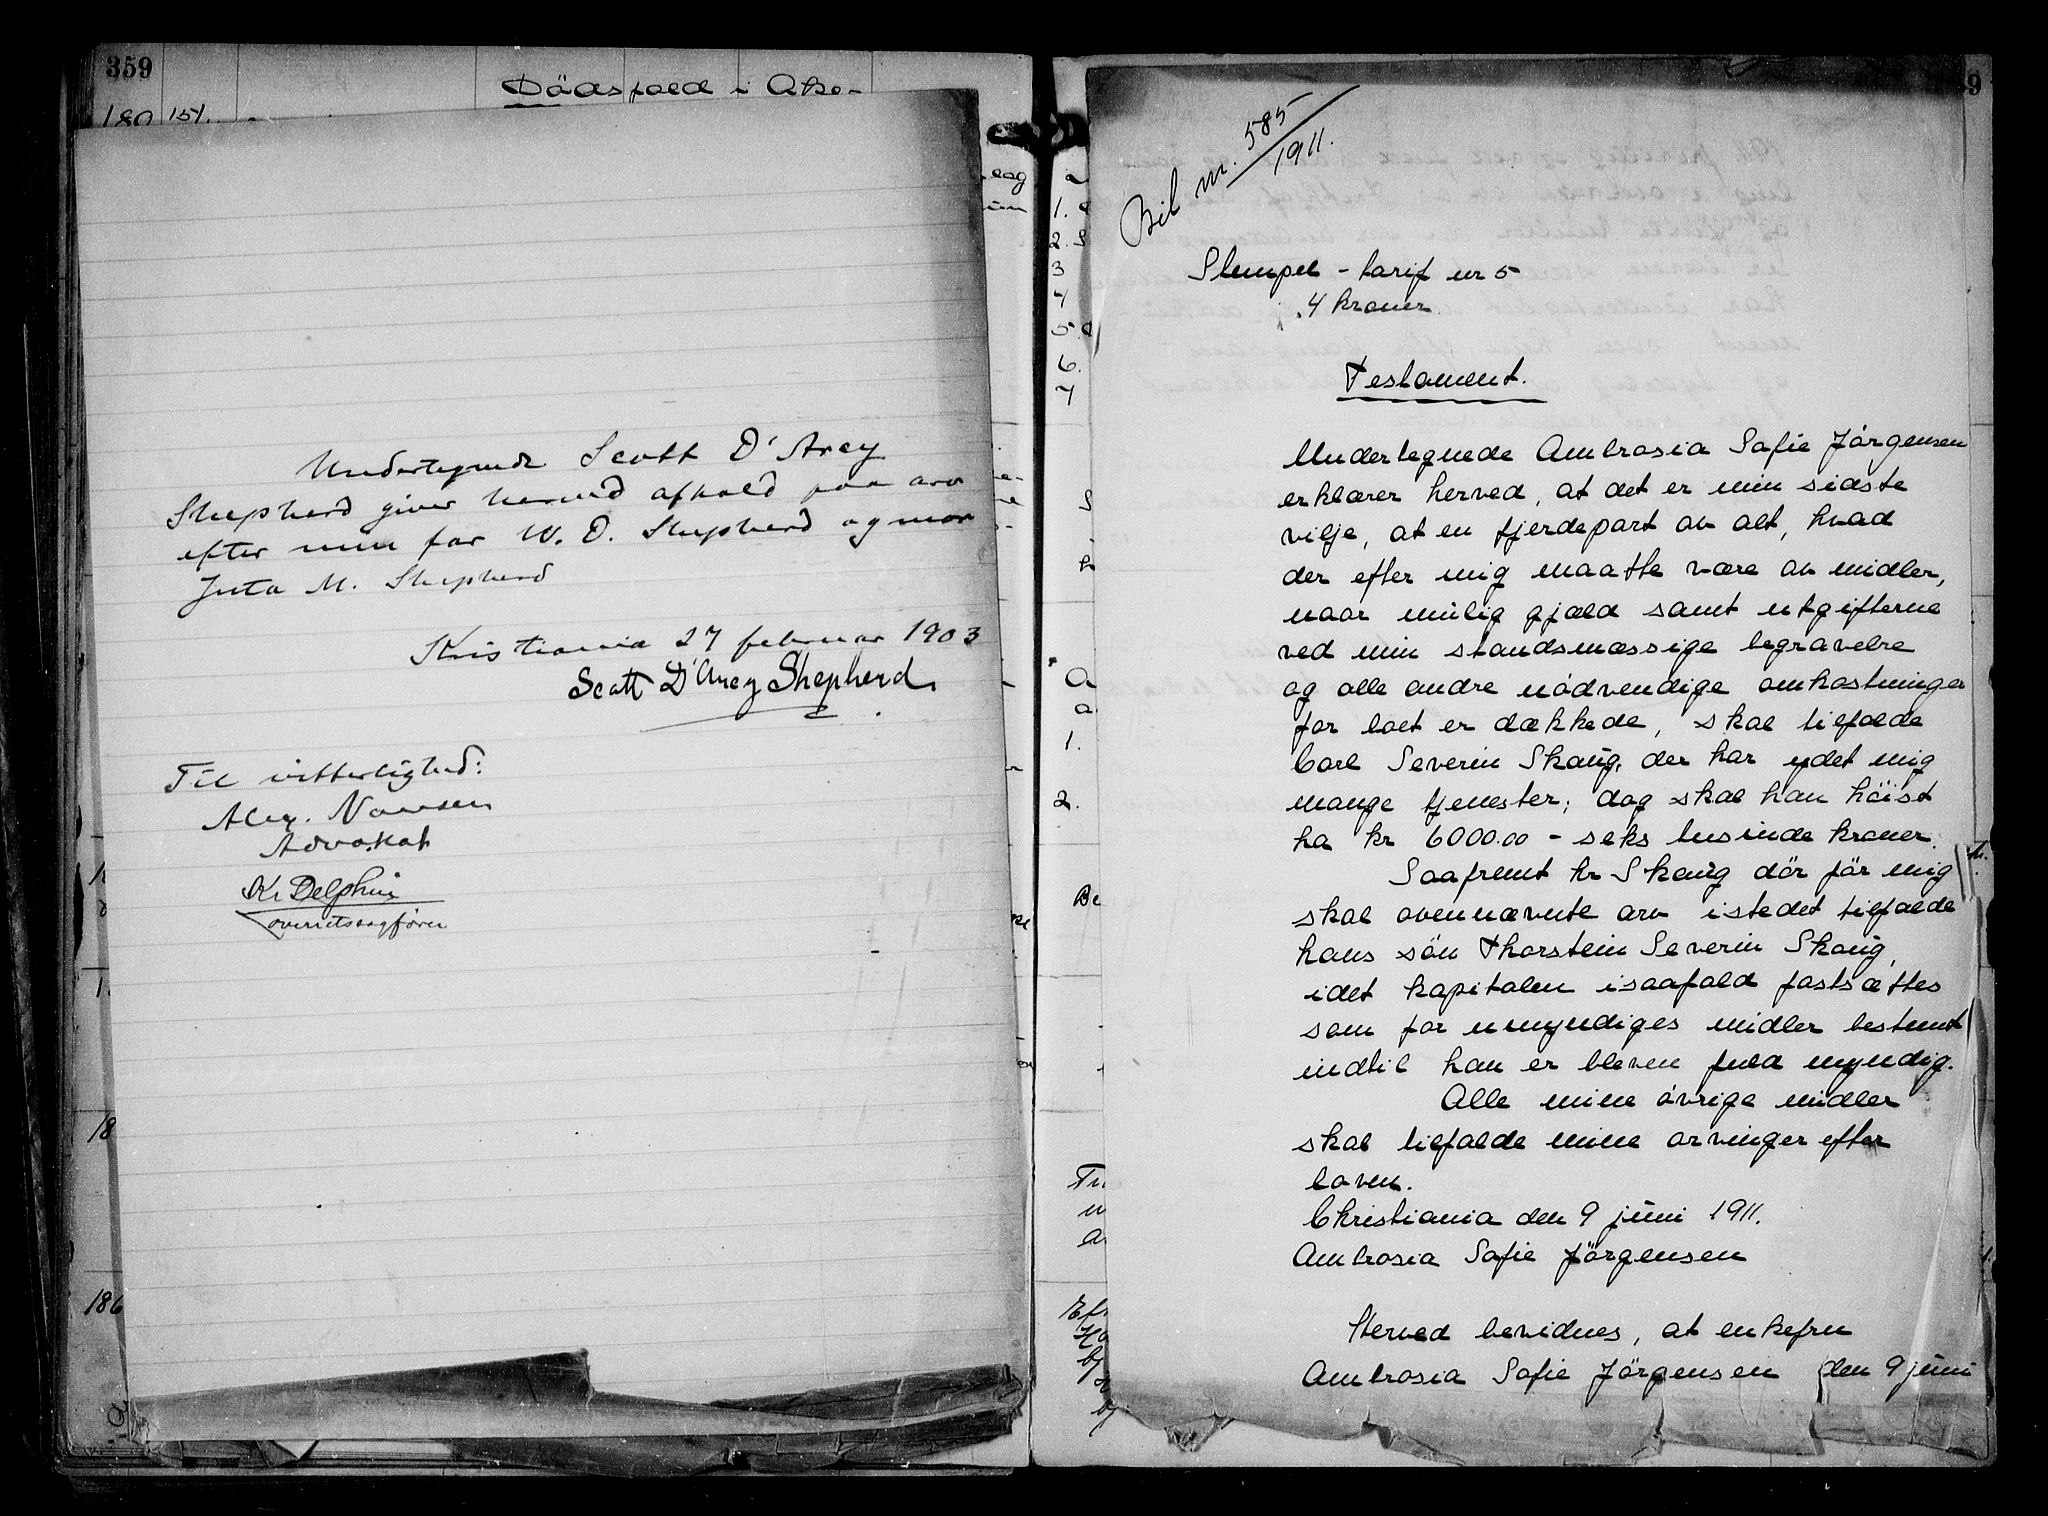 359
Dödsfald i Ake-
180 151.
Undertegnede Scott D'Arcy
Shepherd giver herved afkald paa arv
efter min far W. D. Shepherd og mor
Juta M. Shepherd
Kristiania 27 februar 1903
Scott D'Arcy Shepherd
Til vitterlighed:
Alex. Nansen
Advokat
Kr Delphin
overretssagfører
18
186
Bil nr. 585/1911.
Stempel - tarif nr 5
4 kroner.
Testament.
Undertegnede Ambrosia Sofie Jörgensen
erklærer herved, at det er min sidste
vilje, at en fjerdepart av alt, hvad
der efter mig maatte være av midler,
naar mulig gjæld samt utgifterne
ved min standsmæssige begravelse
og alle andre nödvendige omkostninger
for boet er dækkede, skal tilfalde
Carl Severin Skaug, der har ydet mig
mange tjenester; dog skal han höist
ha kr 6000.00 - seks tusinde kroner.
Saafremt hr Skaug dör för mig
skal ovennævnte arv istedet tilfalde
hans sön Thorstein Severin Skaug,
idet kapitalen isaafald fastsættes
som for umyndiges midler bestemt
indtil han er bleven fuld myndig.
Alle mine övrige midler
skal tilfalde mine arvinger efter
loven.
Christiania den 9 juni 1911.
Ambrosia Sofie Jörgensen
Herved bevidnes, at enkefru
Ambrosia Sofie Jörgensen den 9 juni